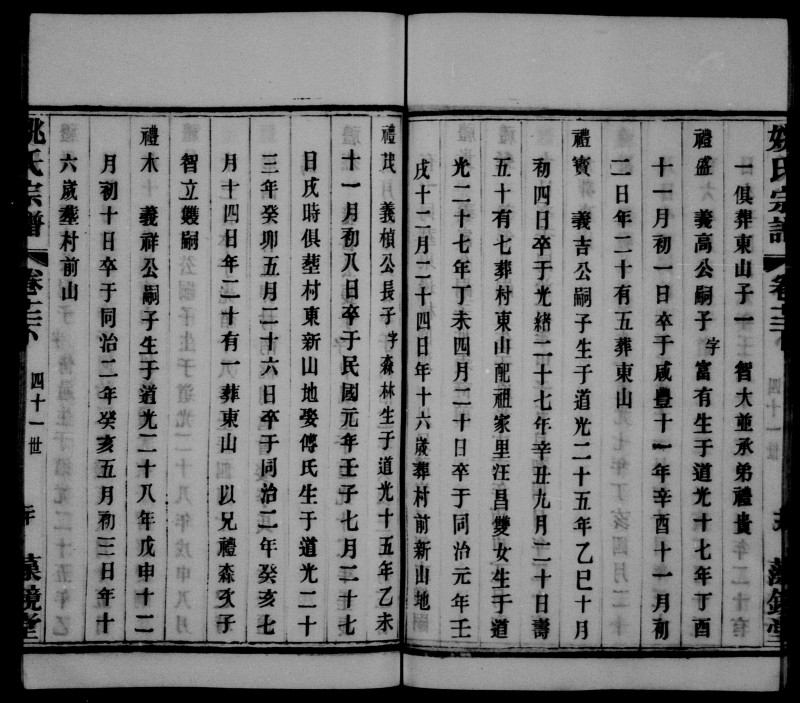 姚氏宗譜
卷之三下
四十一世
藻鏡堂
一俱葬東山子一 智大並承弟禮貴
禮盛 義高公嗣子字富有生于道光十七年丁酉
十一月初一日卒于咸豐十一年辛酉十一月初
二日年二十有五葬東山
禮寶 義吉公嗣子生于道光二十五年乙巳十月
初四日卒于光緒二十七年辛丑九月二十日壽
五十有七葬村東山配祖家里汪昌雙女生于道
光二十七年丁未四月二十日卒于同治元年壬
戌十二月二十四日年十六歲葬村前新山地
禮茂 義楨公長子字森林生于道光十五年乙未
十一月初八日卒于民國元年壬子七月二十七
日戌時俱塟村東新山地娶傅氏生于道光二十
三年癸卯五月二十六日卒于同治二年癸亥七
月十四日年二十有一葬東山 以兄禮森次子
智立雙嗣
禮木 義祥公嗣子生于道光二十八年戊申十二
月初十日卒于同治二年癸亥五月初三日年十
六歲葬村前山
姚氏宗譜
四十一世
藻鏡堂